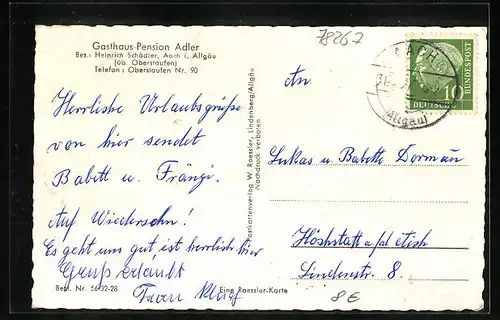 Gasthaus-Pension Adler
Bes.: Heinrich Schädler, Aach i. Allgäu
(üb. Oberstaufen)
Telefon: Oberstaufen Nr. 90
78267
AACH
(Allgäu)
10
DEUTSCHE
BUNDESPOST
An
Herrliche Urlaubsgrüße
von hier sendet
Babett u. Fränzi.
Auf Wiedersehn!
Es geht uns gut, ist herrlich hier
Gruß
Postkartenverlag W. Roessler, Lindenberg/Allgäu
Nachdruck verboren
Lukas u. Babette Dormann
Höchstatt a/d
Lindenstr. 8.
Best. Nr. 5632-28
Eine Roessler-Karte
8€